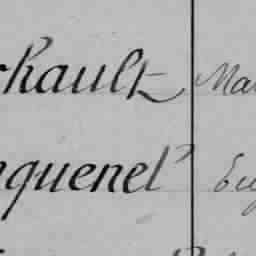 khault Ma
nquenel Eug